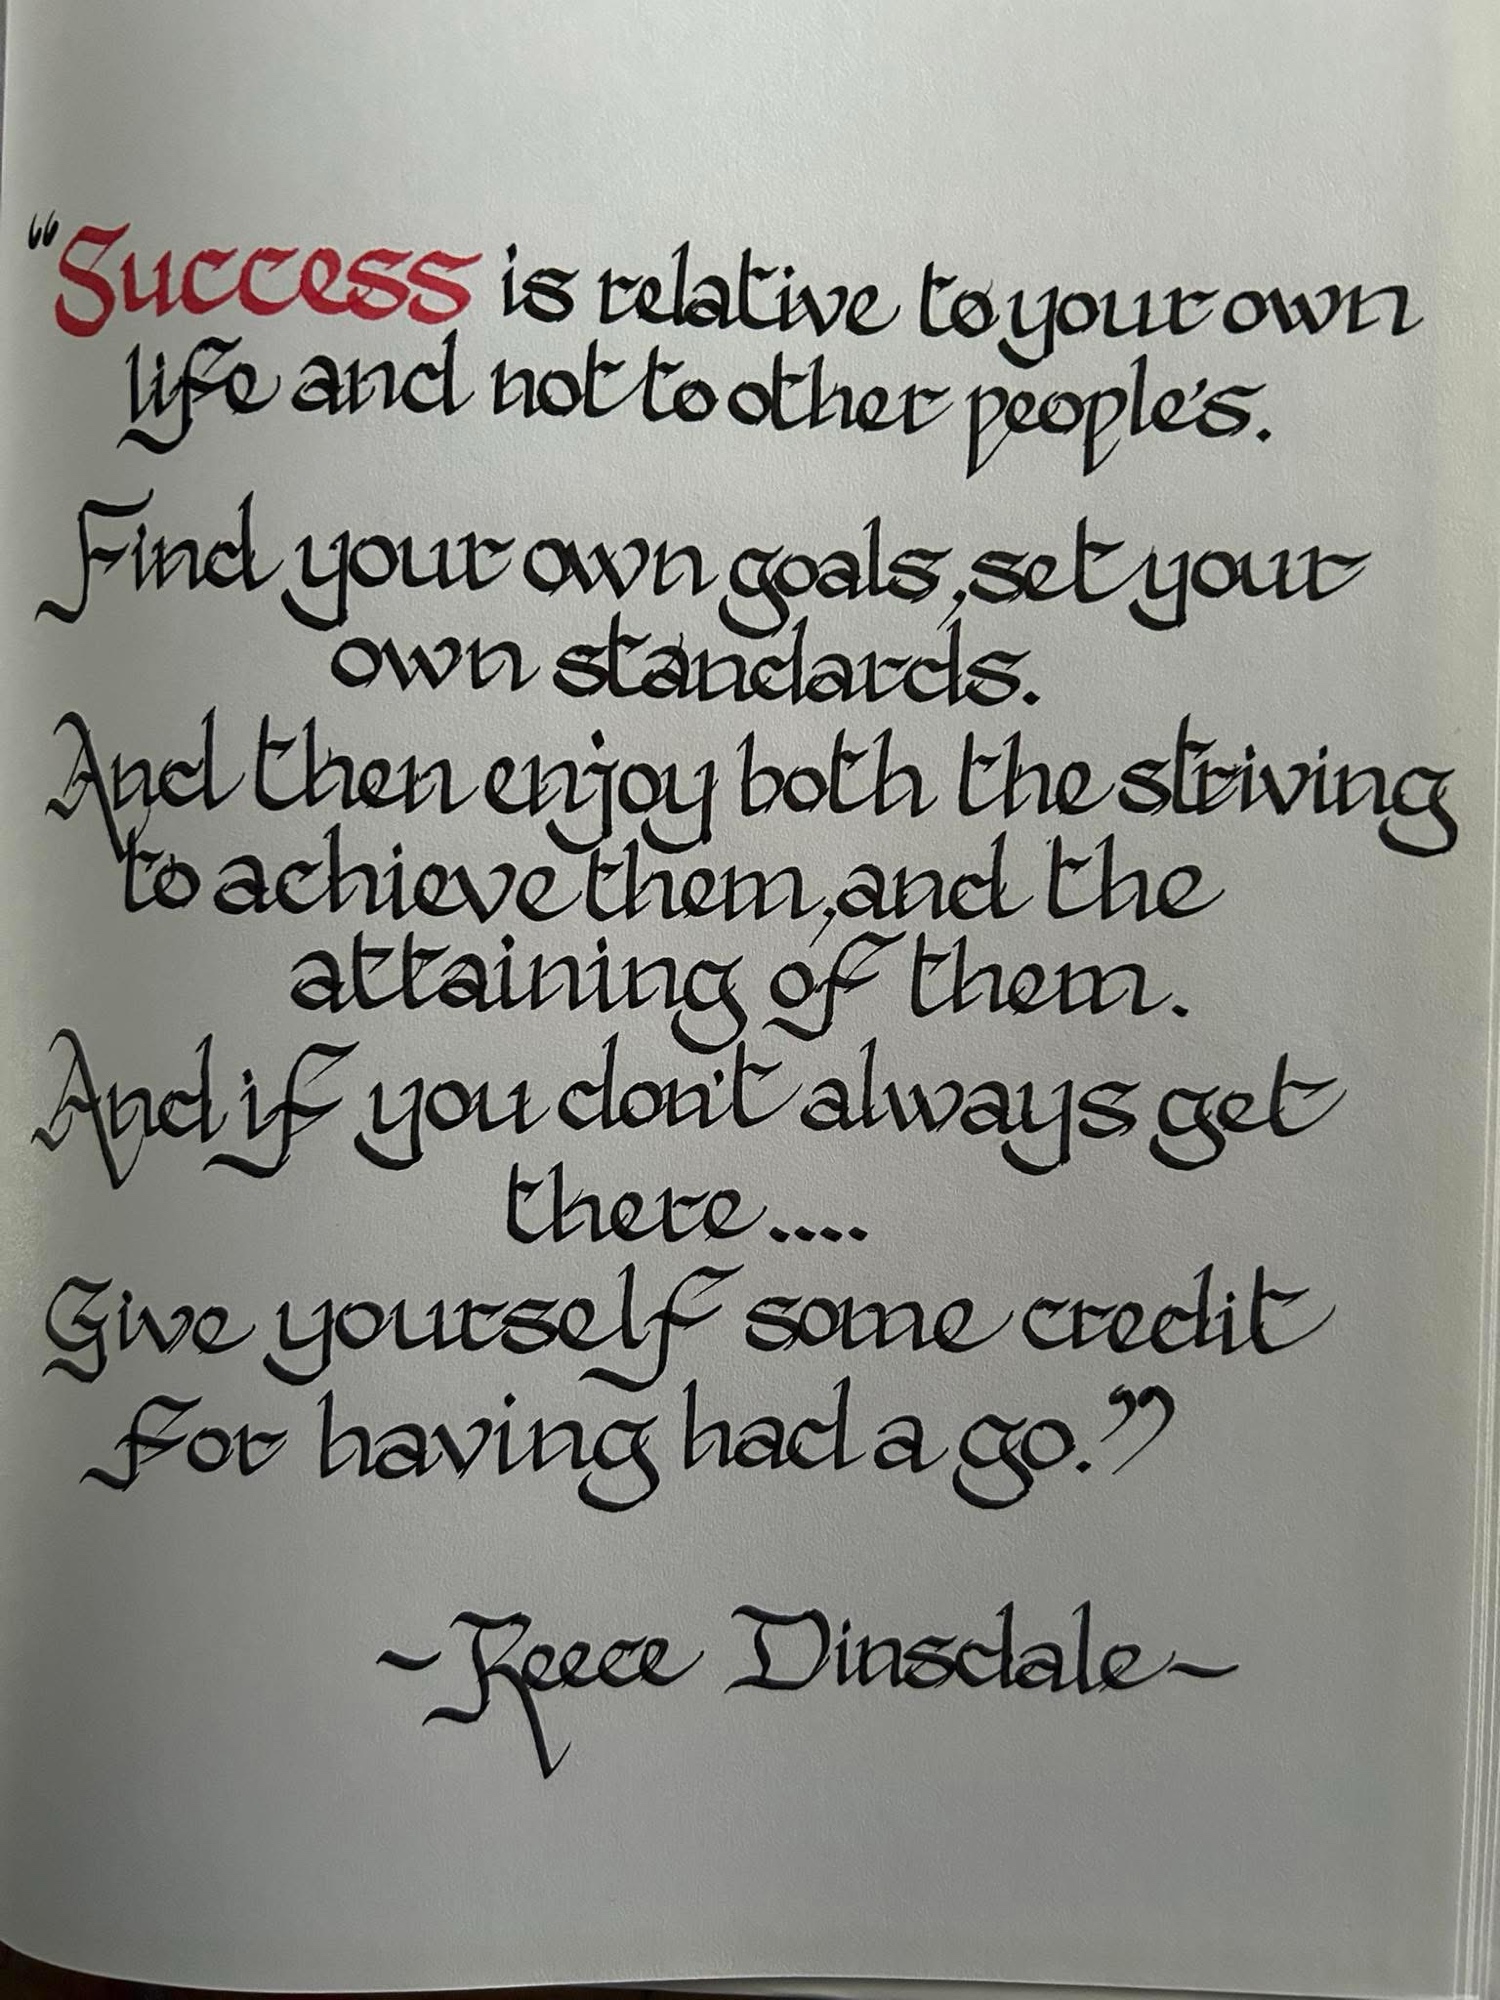 “Success is relative to your own
life and not to other people's.
Find your own goals, set your
own standards.
And then enjoy both the striving
to achieve them, and the
attaining of them.
And if you don't always get
there....
Give yourself some credit
For having had a go.”
~Reece Dinsdale~